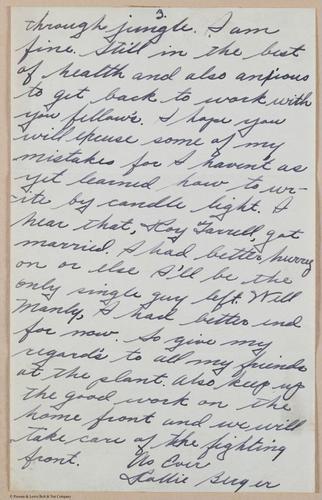 3.
through jungle. I am
fine. Still in the best
of health and also anxious
to get back to work with
you fellows. I hope you
will excuse some of my
mistakes for I haven't as
yet learned how to wr-
ite by candle light. I
hear that, Roy Farrell, got
married. I had better hurry
on or else I'll be the
only single guy left. Well
Manly, I had better end
for now. So give my
regards to all my friends
at the plant. Also keep up
the good work on the
home front and we will
take care of the fighting
front. As Ever
Berger
© Russell, Burdsall & Ward Bolt & Nut Company